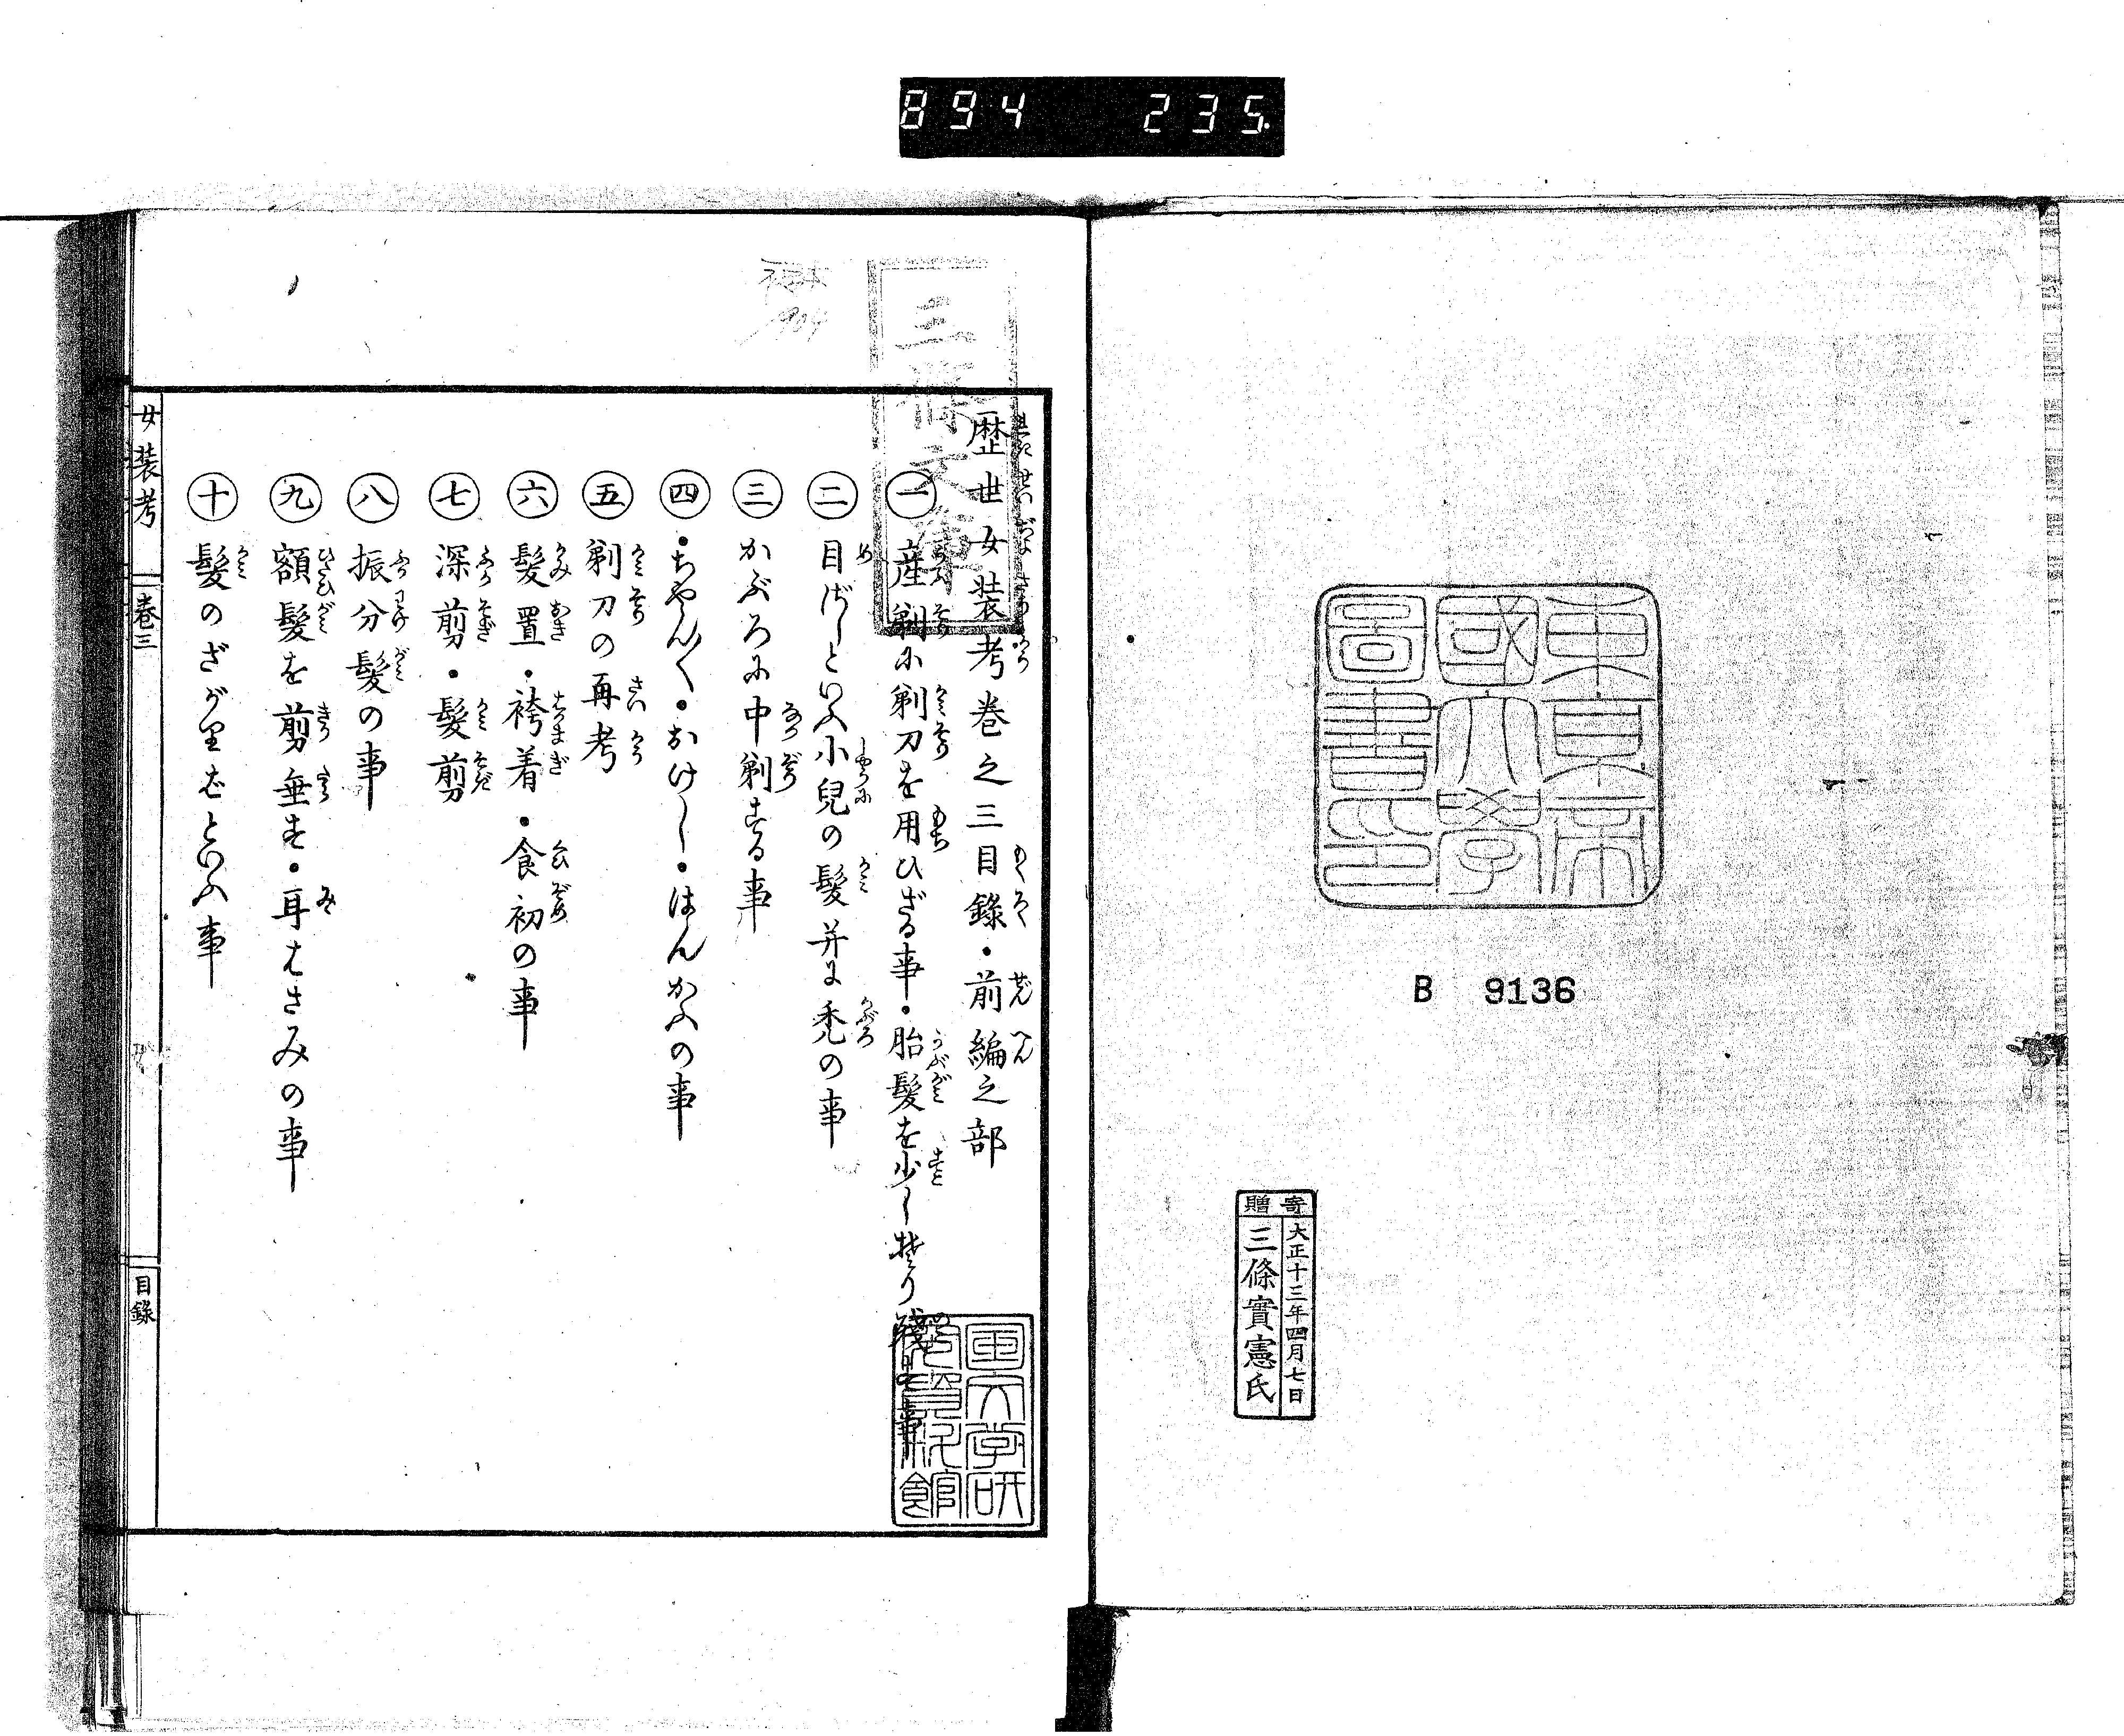 894 235.
東京帝
國大學
圖書之
B 9136
寄贈
大正十三年四月七日
三條實憲氏
歴世女装考巻之三目録・前編之部
一 産剃に剃刀を用ひざる事・胎髪を少し残す事
二 目ざしといふ小兒の髪并に禿の事
三 かぶろに中剃する事
四 ・ちやん〳〵・おけし・はんかふの事
五 剃刀の再考
六 髪置・袴着・食初の事
七 深剪・髪剪
八 振分髪の事
九 額髪を剪垂す・耳はさみの事
十 髪のざがりばといふ事
女装考 巻三 目録
三條文庫
国文学研
究資料館